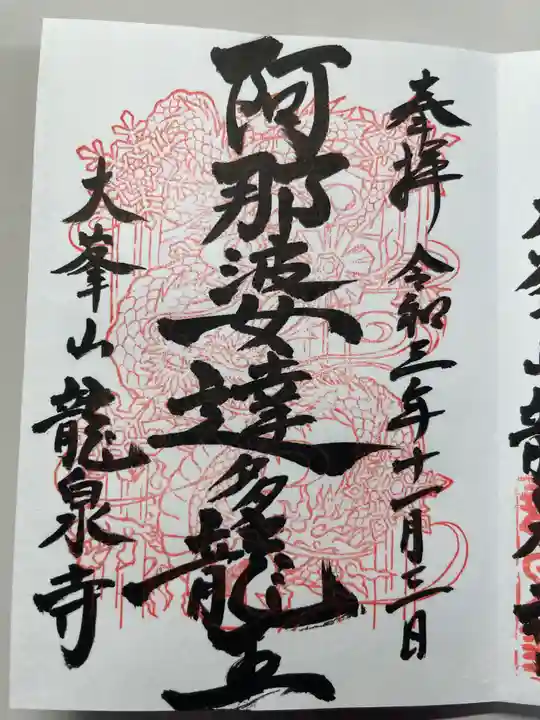 奉拝 令和三年十一月三日
阿那婆達多龍王
大峯山龍泉寺